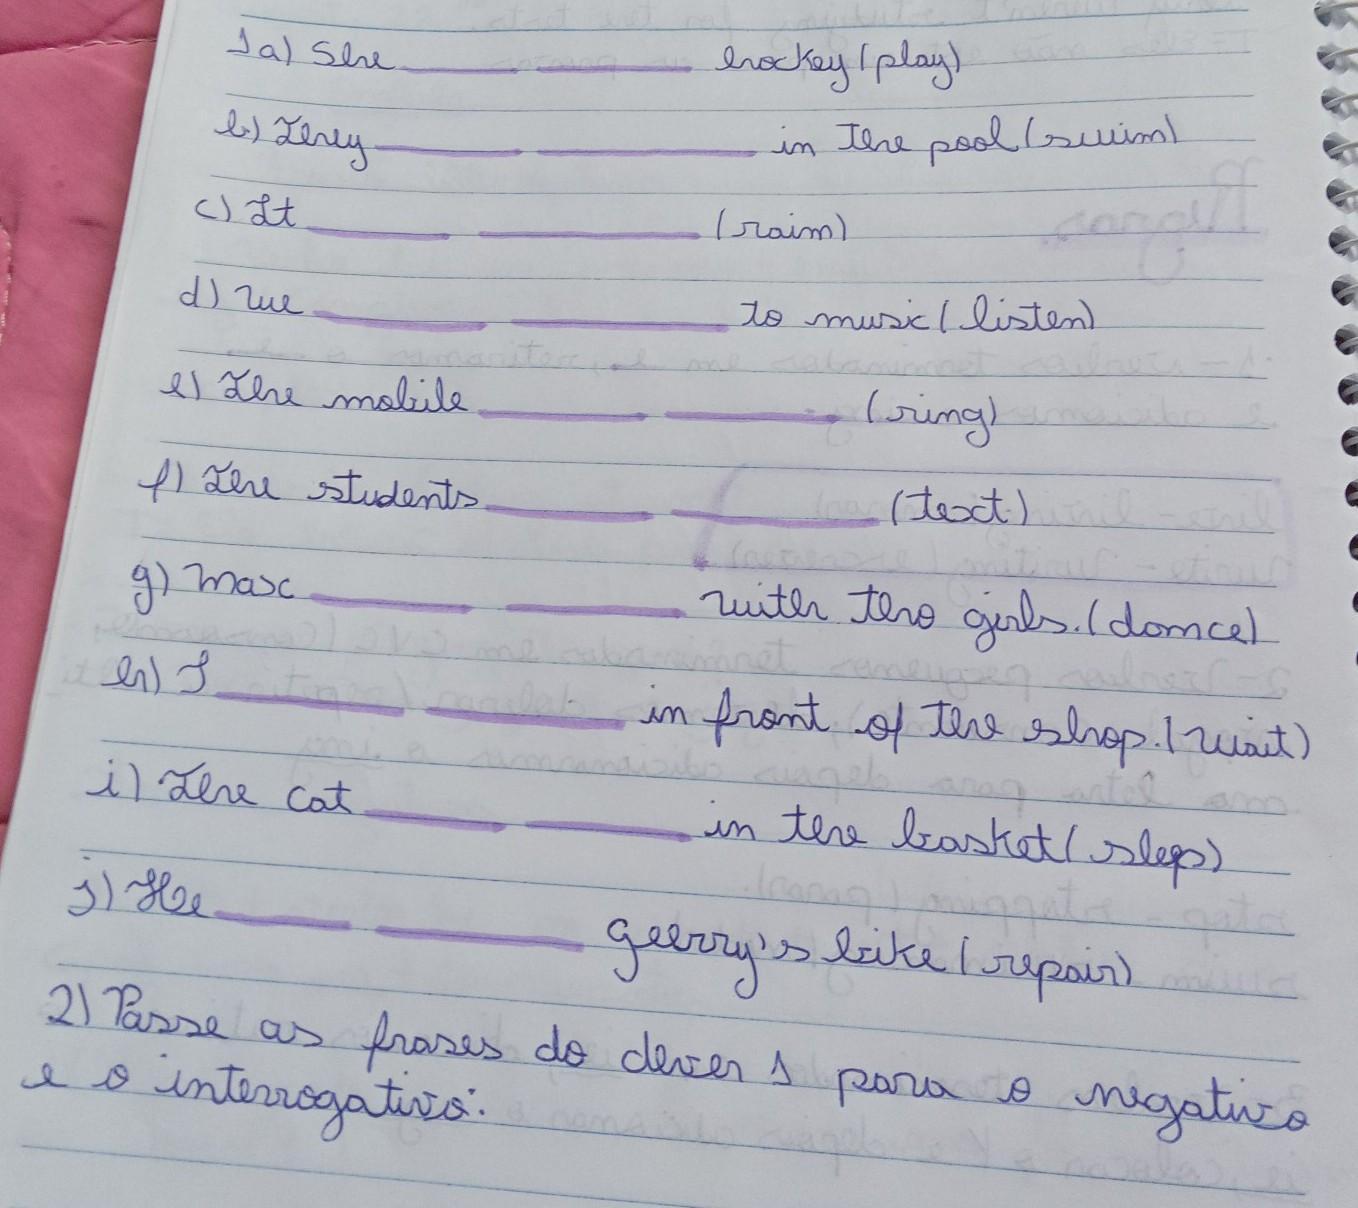 1a) She ____ ____ hockey (play)
b) They ____ ____ in the pool (swim)
c) It ____ ____ (raim)
d) we ____ ____ to music (listen)
e) The mobile ____ ____ (ring)
f) The students ____ ____ (text)
g) Max ____ ____ with the girls. (domce)
h) I ____ ____ in front of the shop. (wait)
i) The cat ____ ____ in the basket (slep)
j) He ____ ____ geerry's bike (repair)
2) Passe as frases do dever 1 para o negativo
e o interrogativo: